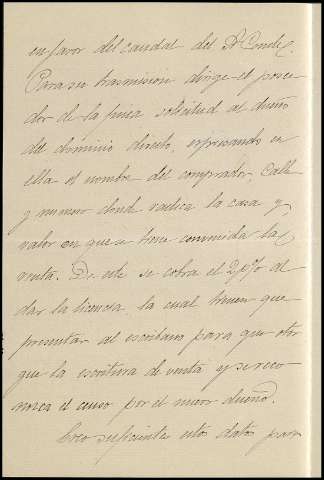 en favor del caudal del Sr Conde.
Para su trasmision dirige el posee
dor de la finca solicitud al dueño
del dominio directo, espresando en
ella el nombre del comprador, calle
y numero donde radica la casa y
valor en que se tiene convenida la
venta. De este se cobra el 2 p% al
dar la licencia, la cual tienen que
presentar al escribano para que otor
gue la escritura de venta y se reco
nozca el censo por el nuevo dueño.
Creo suficientes estos datos para